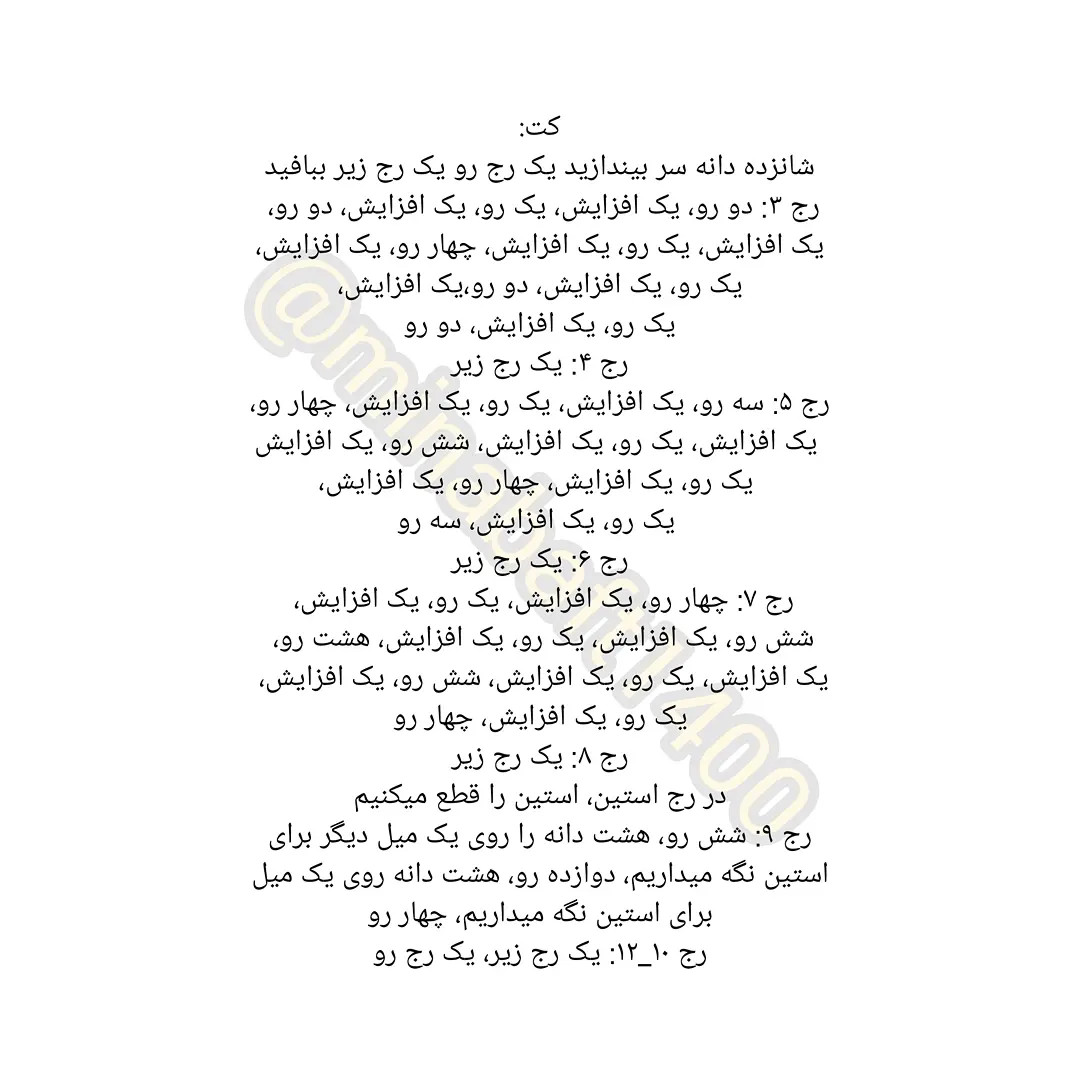 کت:
شانزده دانه سر بیندازید یک رج رو یک رج زیر ببافید
رج ۳: دو رو، یک افزایش، یک رو، یک افزایش، دو رو،
یک افزایش، یک رو، یک افزایش، چهار رو، یک افزایش،
یک رو، یک افزایش، دو رو،یک افزایش،
یک رو، یک افزایش، دو رو
رج ۴: یک رج زیر
رج ۵: سه رو، یک افزایش، یک رو، یک افزایش، چهار رو،
یک افزایش، یک رو، یک افزایش، شش رو، یک افزایش
یک رو، یک افزایش، چهار رو، یک افزایش،
یک رو، یک افزایش، سه رو
رج ۶: یک رج زیر
رج ۷: چهار رو، یک افزایش، یک رو، یک افزایش،
شش رو، یک افزایش، یک رو، یک افزایش، هشت رو،
یک افزایش، یک رو، یک افزایش، شش رو، یک افزایش،
یک رو، یک افزایش، چهار رو
رج ۸: یک رج زیر
در رج استین، استین را قطع میکنیم
رج ۹: شش رو، هشت دانه را روی یک میل دیگر برای
استین نگه میداریم، دوازده رو، هشت دانه روی یک میل
برای استین نگه میداریم، چهار رو
رج ۱۰_۱۲: یک رج زیر، یک رج رو
@minabaft1400